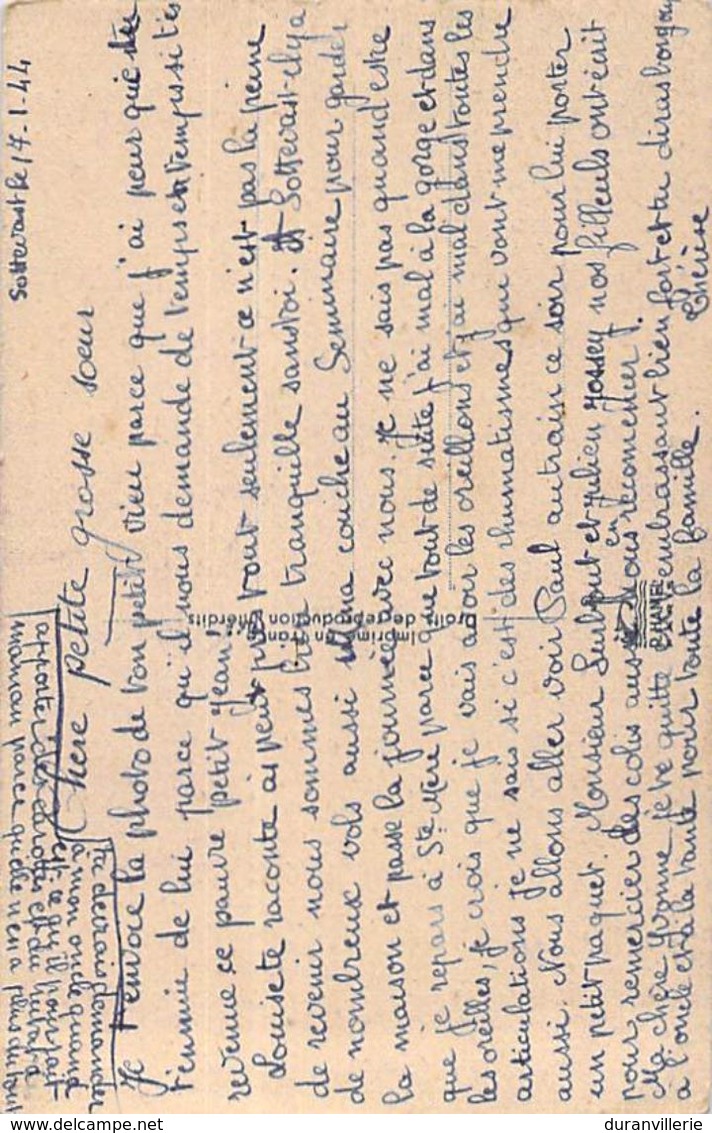 Sottevast le 17-1-44
Chère petite grosse soeur
Je t'envoie la photo de ton petit vieu parce que j'ai peur que tu
t'ennuie de lui parce qu'il nous demande de temps en temps si tu es
revenue ce pauvre petit Jean,
Louisete raconte à peut près tout seulement ce n'est pas la peine
de revenir nous sommes tranquille sans toi. A Sottevast il y a
de nombreux vols aussi couche au Seminaire pour garder
la maison et passe la journée avec nous. Je ne sais pas quand est ce
que je repars à Ste Mère parce que tout de suite j'ai mal à la gorge et dans
les oreilles, je crois que je vais avoir les oreillons et j'ai mal dans toutes les
articulations je ne sais si c'est des rhumatismes qui vont me prendre
aussi. Nous allons aller voir Paul au train ce soir pour lui porter
un petit paquet. Monsieur et Julien nos filleuls ont écrit
pour remercier des colis aussi nous en recomencer!
Ma chère Yvonne je te quitte en t'embrassant bien fort et tu diras bonjour
à l'oncle et à la tante pour toute la famille.
Thérèse
Tu devrais demander
à mon oncle quand
est ce qu'il pourrait
apporter des carottes et du
maman parce qu'elle n'en a plus du tout
Imprimé en France
Droits de reproduction interdits
CHANEL
www.delcampe.net
duranvillerie